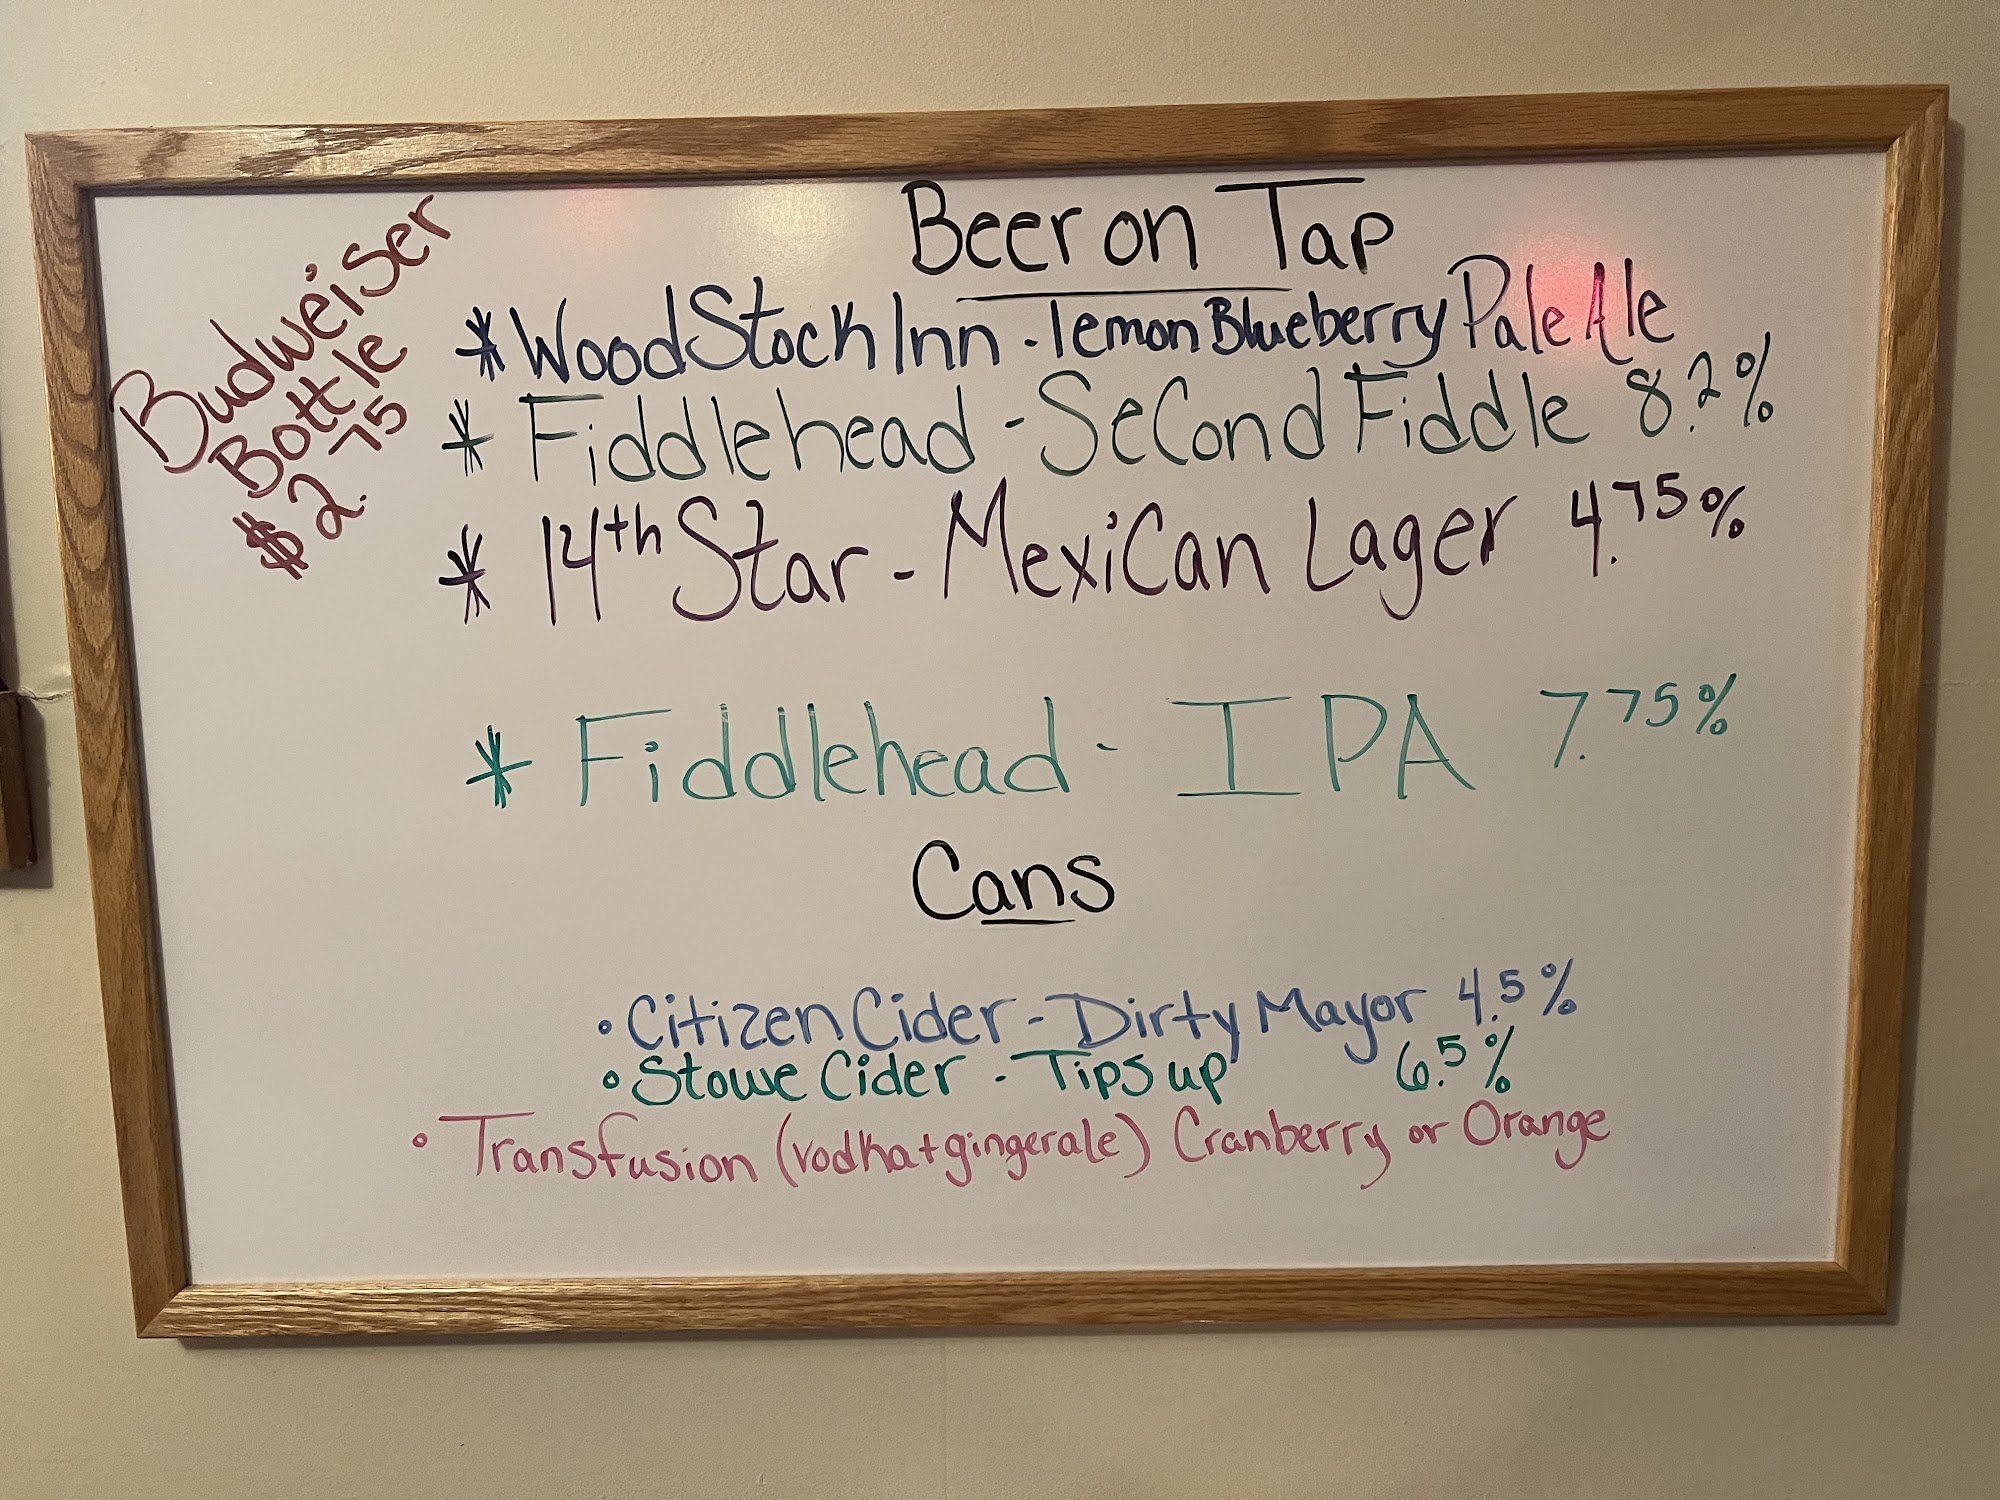 Budweiser
Bottle
$2.75
Beer on Tap
* WoodStock Inn - lemon Blueberry Pale Ale
* Fiddlehead - Second Fiddle 8.2%
* 14th Star - Mexican Lager 4.75%
* Fiddlehead - IPA 7.75%
Cans
• Citizen Cider - Dirty Mayor 4.5%
• Stowe Cider - Tips up 6.5%
• Transfusion (vodka + gingerale) Cranberry or Orange